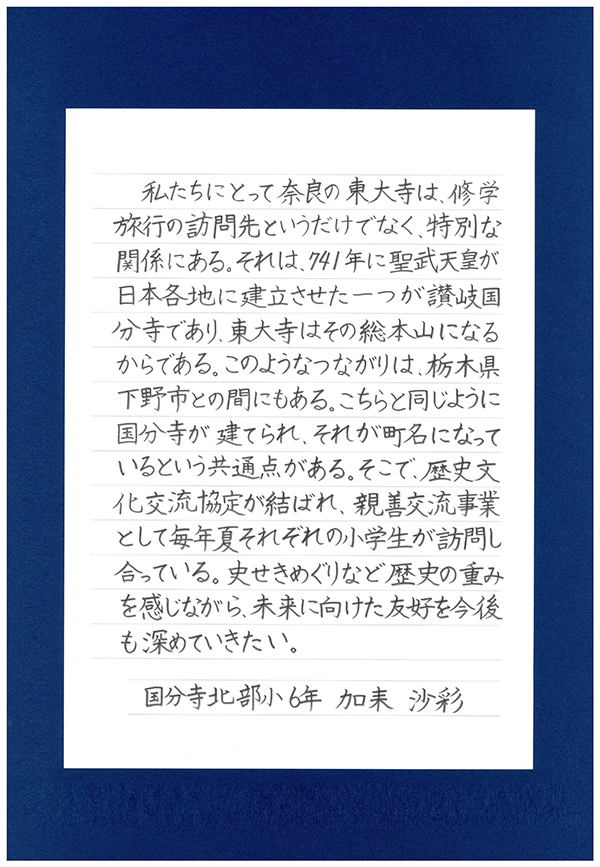 私たちにとって奈良の東大寺は、修学
旅行の訪問先というだけでなく、特別な
関係にある。それは、741年に聖武天皇が
日本各地に建立させた一つが讃岐国
分寺であり、東大寺はその総本山になる
からである。このようなつながりは、栃木県
下野市との間にもある。こちらと同じように
国分寺が建てられ、それが町名になって
いるという共通点がある。そこで、歴史文
化交流協定が結ばれ、親善交流事業
として毎年夏それぞれの小学生が訪問し
合っている。史せきめぐりなど歴史の重み
を感じながら、未来に向けた友好を今後
も深めていきたい。
国分寺北部小6年 加耒 沙彩